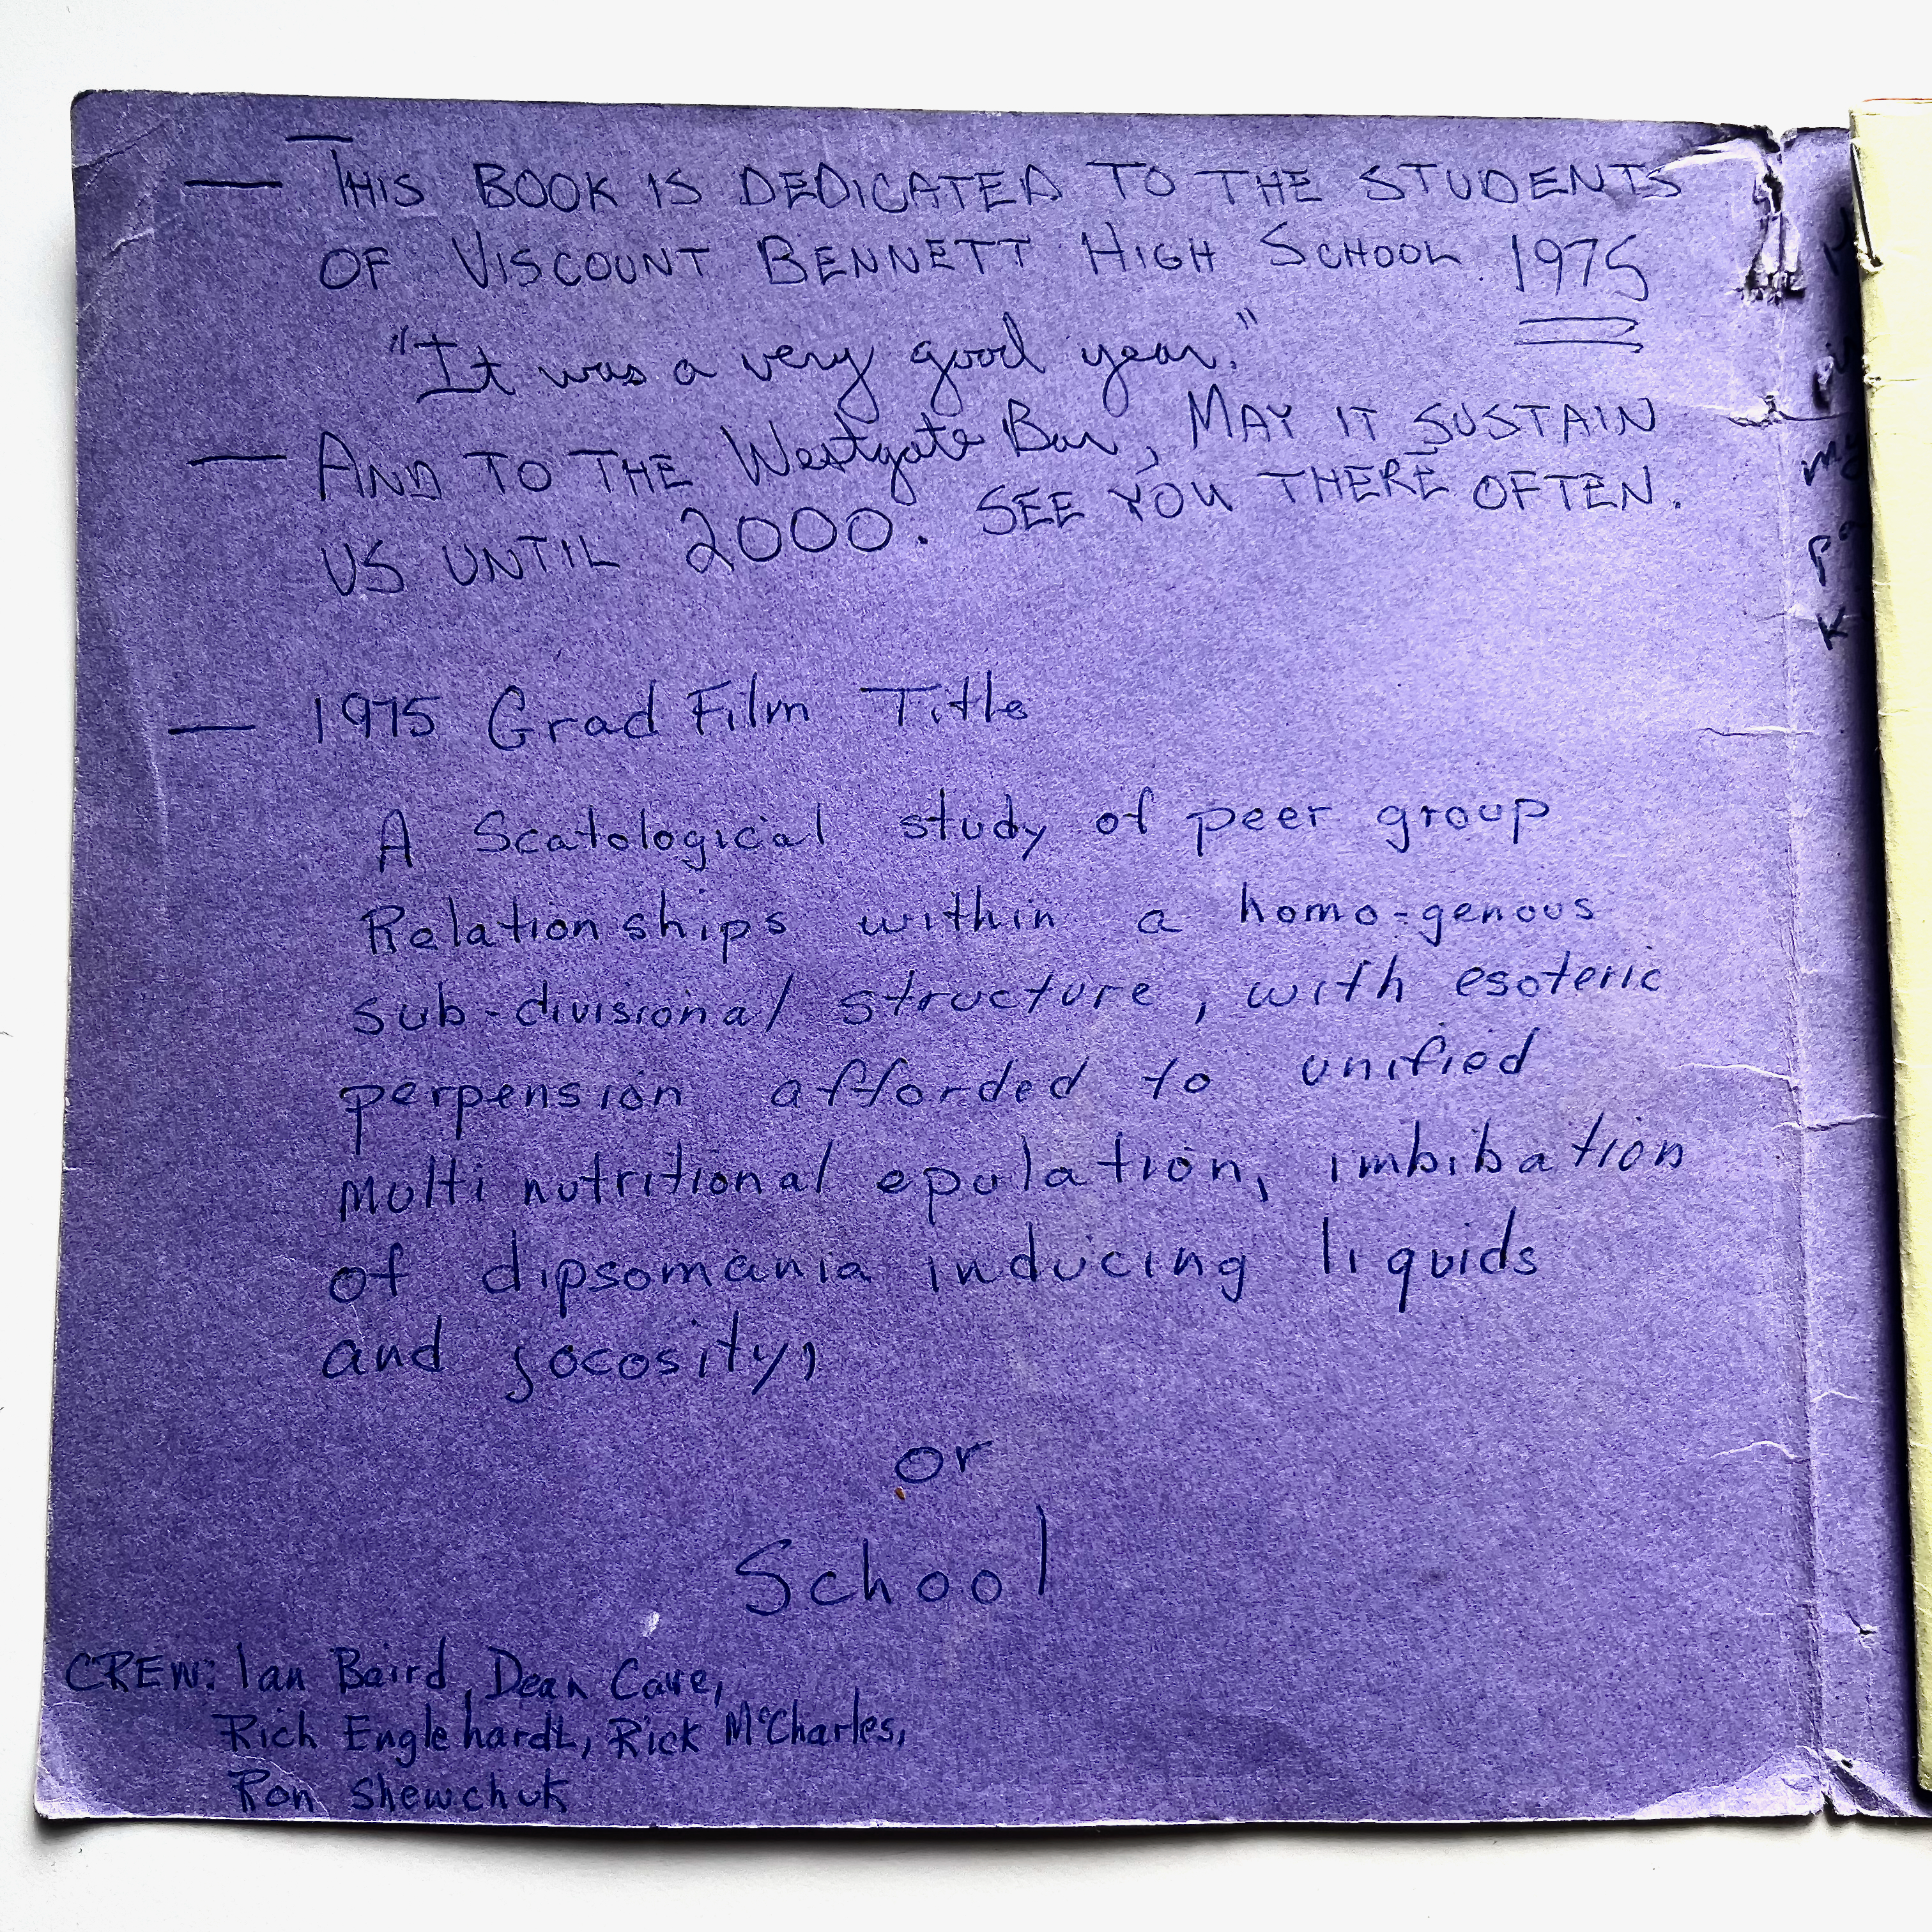 — THIS BOOK IS DEDICATED TO THE STUDENTS
OF VISCOUNT BENNETT HIGH SCHOOL. 1975
"It was a very good year."
— AND TO THE Westgate Bar, MAY IT SUSTAIN
US UNTIL 2000. SEE YOU THERE OFTEN.
— 1975 Grad Film Title
A Scatological study of peer group
Relationships within a homo-genous
sub-divisional structure, with esoteric
perpension afforded to unified
multi nutritional epulation, imbibation
of dipsomania inducing liquids
and jocosity,
or
School
CREW: Ian Baird, Dean Cave,
Rich Englehardt, Rick McCharles,
Ron Shewchuk